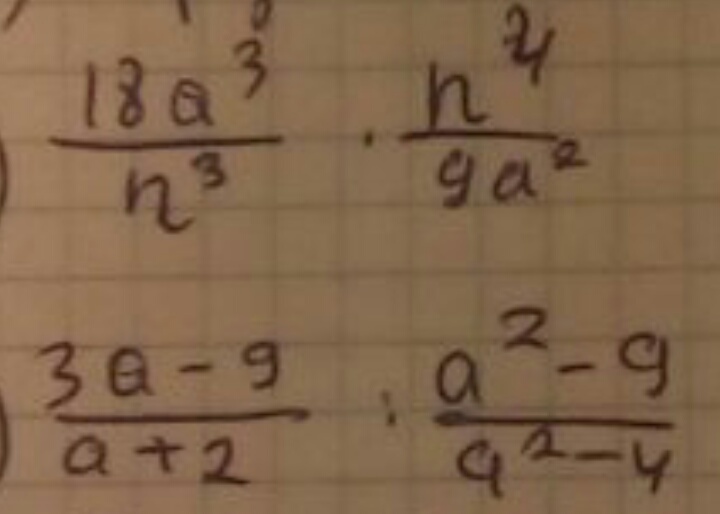 18a³/n³ · n⁴/9a²
3a-9/a+2 : a²-9/a²-4